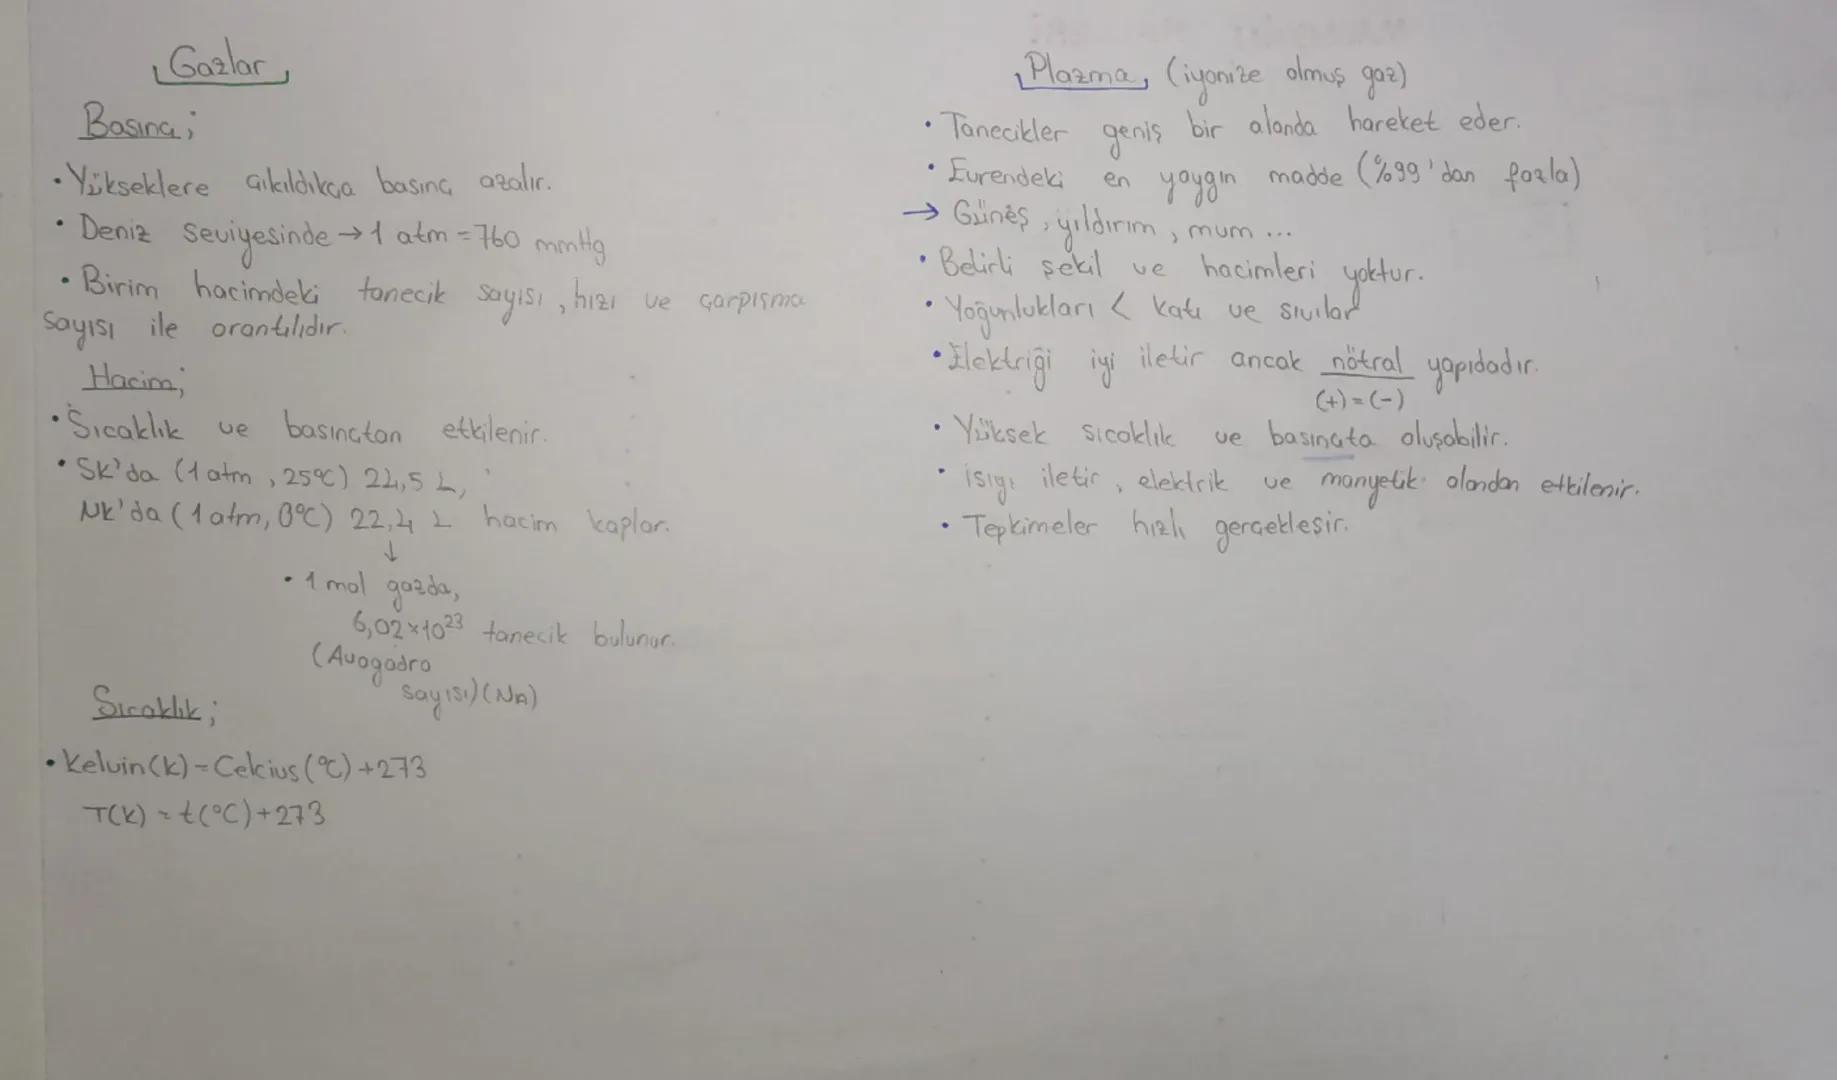 Gazlar
Basınç;
• Yükseklere çıkıldıkça basınç azalır.
• Deniz seviyesinde → 1 atm = 760 mmHg
• Birim hacimdeki tanecik sayısı, hızı ve çarpışma
sayısı ile orantılıdır.
Hacim;
• Sıcaklık ve basınçtan etkilenir.
• SK'da (1 atm, 25°C) 24,5 L,
NK'da (1 atm, 0°C) 22,4 L hacim kaplar.
↓
• 1 mol gazda,
6,02×10²³ tanecik bulunur.
(Avogadro
sayısı) (NA)
Sıcaklık;
• Kelvin(K) = Celcius(°C) +273
T(K) = t(°C)+273
Plazma, (iyonize olmuş gaz)
• Tanecikler geniş bir alanda hareket eder.
• Evrendeki en yaygın madde (%99'dan fazla)
→ Güneş, yıldırım, mum ...
• Belirli şekil ve hacimleri yoktur.
• Yoğunlukları < katı ve sıvılar
• Elektriği iyi iletir ancak nötral yapıdadır.
(+) = (-)
• Yüksek sıcaklık ve basınçta oluşabilir.
• ısıyı iletir, elektrik ve manyetik alandan etkilenir.
• Tepkimeler hızlı gerçekleşir.